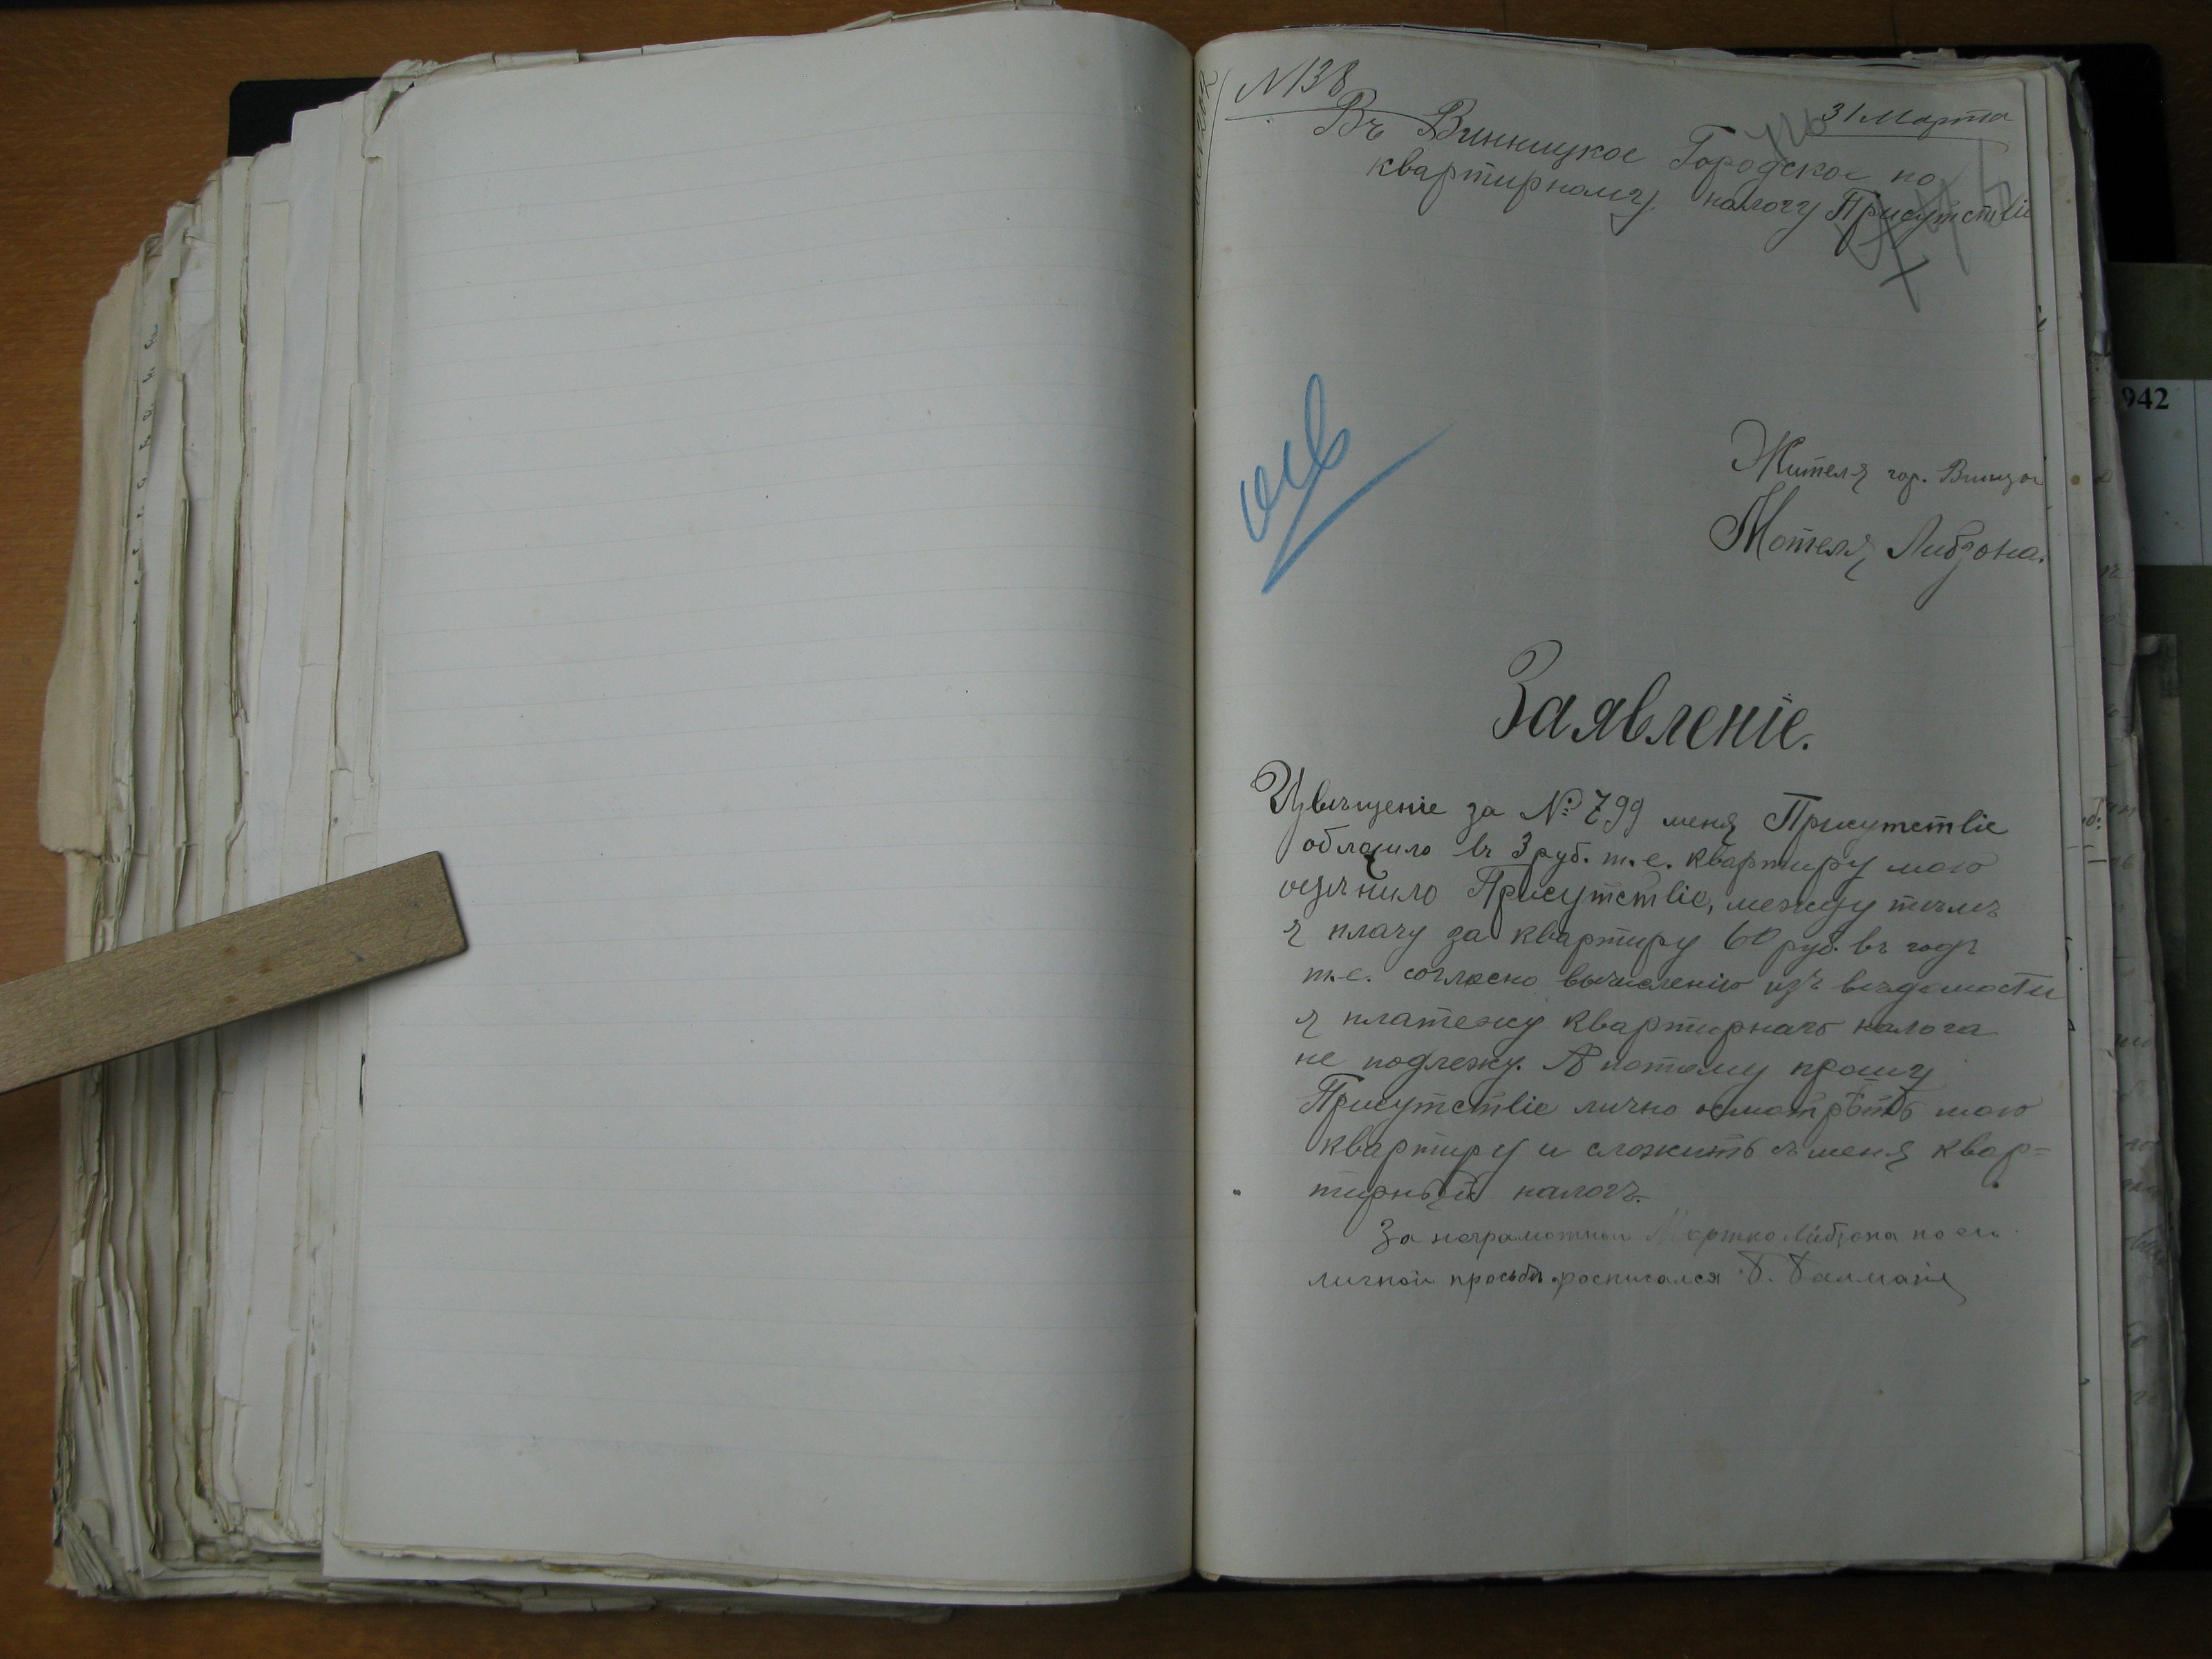 N 138
31 Марта
Въ Винницкое Городское по
квартирному налогу Присутствіе
Жителя гор. Винницы
Мотеля Либзона.
Заявленіе.
Извѣщеніе за № 799 меня Присутствіе
обложило въ 3 руб. т.е. квартиру мою
оцѣнило Присутствіе, между тѣмъ
я плачу за квартиру 60 руб. въ годъ
т.е. согласно вычисленію изъ вѣдомости
я платежу квартирнаго налога
не подлежу. А потому прошу
Присутствіе лично осмотрѣть мою
квартиру и сложить съ меня квар=
тирный налогъ.
За неграмотном Мортко Либзона по его
личной просьбѣ росписался Б.
942